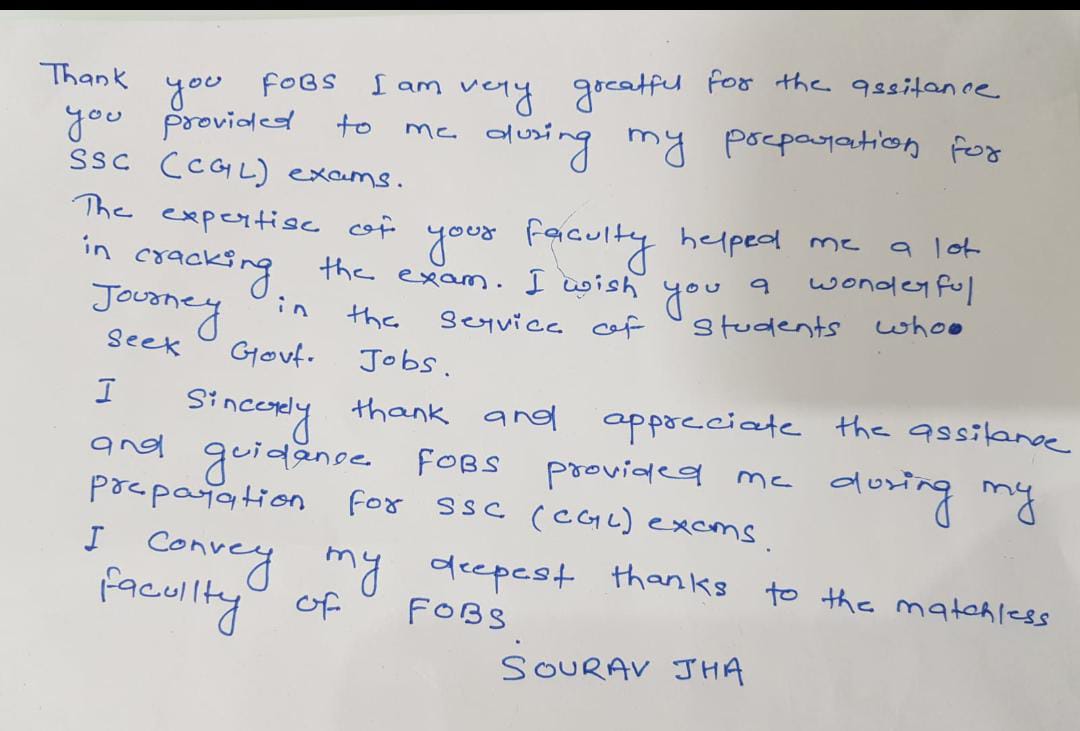 Thank you FOBS I am very greatful for the assitance
you provided to me during my preparation for
SSC (CGL) exams.
The expertise of your faculty helped me a lot
in cracking the exam. I wish you a wonderful
Journey in the service of students who
seek Govt. Jobs.
I Sincerely thank and appreciate the assitance
and guidanse FOBS provided me during my
preparation for SSC (CGL) exams.
I Convey my deepest thanks to the matchless
facullty of FOBS.
SOURAV JHA